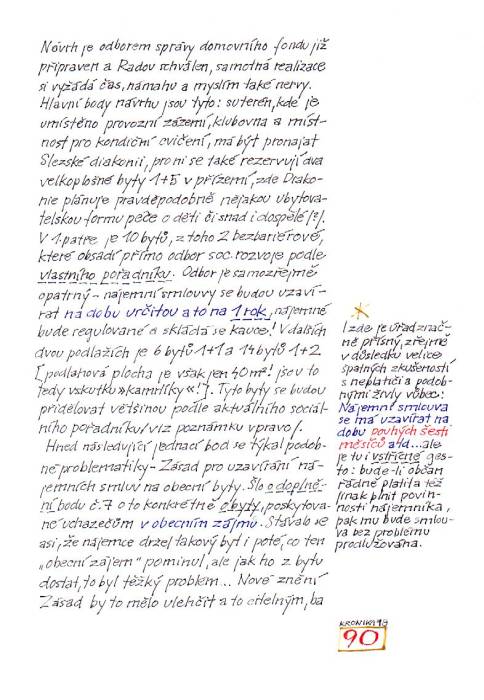 Návrh je odborem správy domovního fondu již
připraven a Radou schválen, samotná realizace
si vyžádá čas, námahu a myslím také nervy.
Hlavní body návrhu jsou tyto: suterén, kde je
umístěno provozní zázemí, klubovna a míst-
nost pro kondiční cvičení, má být pronajat
Slezské diakonii, pro ni se také rezervují dva
velkoplošné byty 1+5 v přízemí, zde Diako-
nie plánuje pravděpodobně nějakou ubytova-
telskou formu péče o děti či snad i dospělé /?/.
V 1. patře je 10 bytů, z toho 2 bezbariérové,
které obsadí přímo odbor soc. rozvoje podle
vlastního pořadníku. Odbor je samozřejmě
opatrný - nájemní smlouvy se budou uzaví-
rat na dobu určitou a to na 1 rok, nájemné
bude regulované a skládá se kauce! V dalších
dvou podlažích je 6 bytů 1+1 a 14 bytů 1+2
[podlahová plocha je však jen 40 m²! jsou to
tedy vskutku »kamrlíky«!]. Tyto byty se budou
přidělovat většinou podle aktuálního sociál-
ního pořadníku /viz poznámku vpravo/.
Hned následující jednací bod se týkal podob-
né problematiky - Zásad pro uzavírání ná-
jemních smluv na obecní byty. Šlo o doplně-
ní bodu č. 7 o to konkrétně o byty, poskytova-
né uchazečům v obecním zájmu. Stávalo se
asi, že nájemce držel takový byt i poté, co ten
„obecní zájem" pominul, ale jak ho z bytu
dostat, to byl těžký problém... Nové znění
Zásad by to mělo ulehčit a to citelným, ba
I zde je úřad znač-
ně přísný, zřejmě
v důsledku velice
špatných zkušeností
s neplatiči a podob-
nými živly vůbec:
Nájemní smlouva
se má uzavírat na
dobu pouhých šesti
měsíců atd... ale
je tu i vstřícné ges-
to: bude-li občan
řádně platit a též
jinak plnit povin-
nosti nájemníka,
pak mu bude smlou-
va bez problému
prodlužována.
KRONIKA 98
90